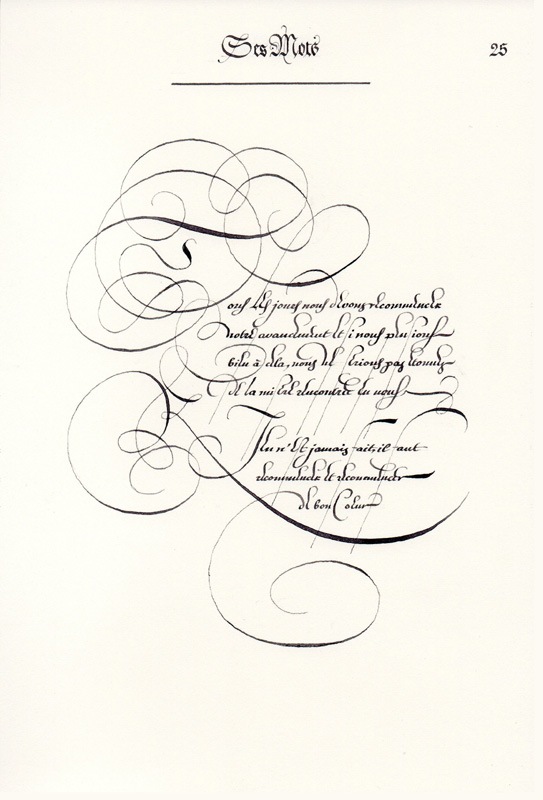 Ses Mots
25
Tous les jours nous devons recommencer
notre avancement et si nous pensions
bien à cela, nous ne serions pas étonnés
de la misère rencontrée en nous
Rien n'est jamais fait, il faut
recommencer et recommencer
de bon Coeur